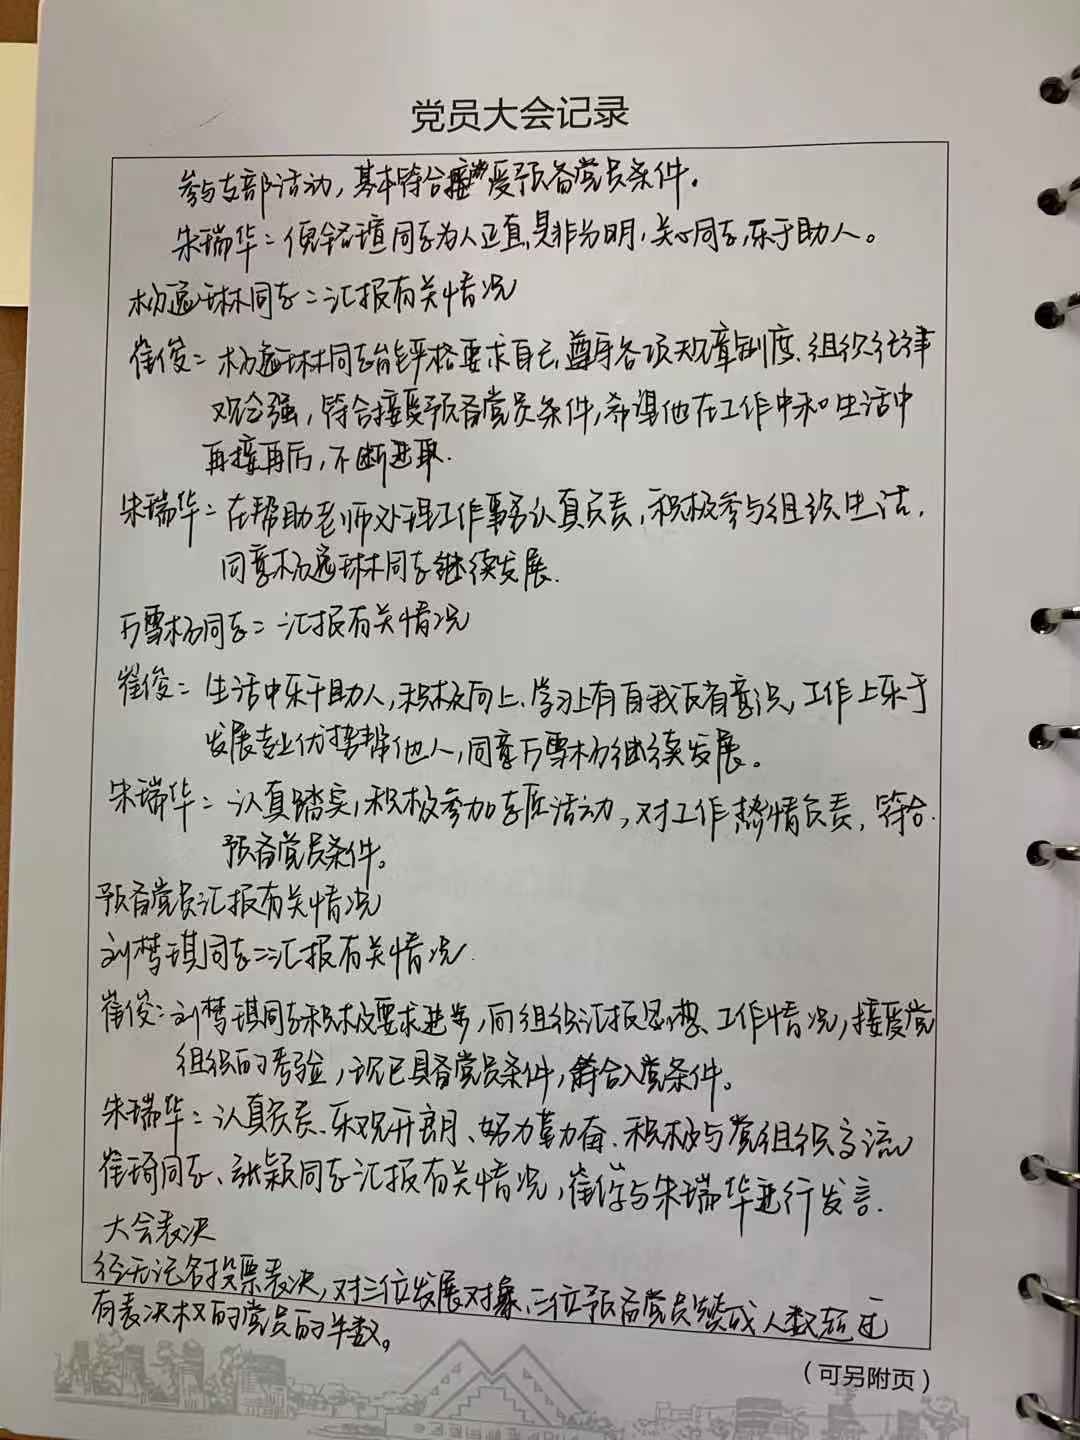 党员大会记录
参与支部活动，基本符合接受预备党员条件。
朱瑞华：倪铭瑄同志为人正直，是非分明，关心同志，乐于助人。
杨逸琳同志：汇报有关情况
崔俊：杨逸琳同志能严格要求自己，遵守各项规章制度、组织纪律
观念强，符合接受预备党员条件，希望他在工作中和生活中
再接再厉，不断进取.
朱瑞华：在帮助老师处理工作事务认真负责，积极参与组织生活，
同意杨逸琳同志继续发展.
万雪杨同志：汇报有关情况
崔俊：生活中乐于助人，积极向上、学习上有自我反省意识，工作上乐于
发展专业优势帮他人，同意万雪杨继续发展。
朱瑞华：认真踏实，积极参加志愿活动，对工作热情负责，符合
预备党员条件。
预备党员汇报有关情况
刘梦琪同志：汇报有关情况
崔俊：刘梦琪同志积极要求进步，向组织汇报思想、工作情况，接受党
组织的考验，现已具备党员条件，符合入党条件。
朱瑞华：认真负责、乐观开朗、努力勤奋、积极与党组织交流
崔琦同志、张颖同志汇报有关情况，崔俊与朱瑞华进行发言.
大会表决
经无记名投票表决，对三位发展对象、三位预备党员赞成人数超过
有表决权的党员的半数。
（可另附页）